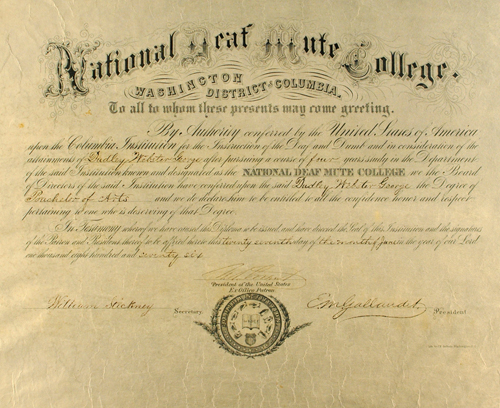 National Deaf Mute College.
WASHINGTON
DISTRICT OF COLUMBIA.
To all to whom these presents may come greeting.
By Authority conferred by the United States of America
upon the Columbia Institution for the Instruction of the Deaf and Dumb and in consideration of the
attainments of Dudley Webster George after pursuing a course of four years study in the Department
of the said Institution known and designated as the NATIONAL DEAF MUTE COLLEGE we the Board
of Directors of the said Institution have conferred upon the said Dudley Webster George the Degree of
Bachelor of Arts and we do declare him to be entitled to all the confidence honor and respect
pertaining to one who is deserving of that Degree
In Testimony whereof we have caused this Diploma to be issued, and have attached the Seal of this Institution and the signatures
of the Patron and Presidents hereof to be affixed hereto this twenty seventh day of the month of in the year of our Lord
one thousand eight hundred and seventy six
President of the United States
Ex-Officio Patron.
William Stickney Secretary. E M Gallaudet President